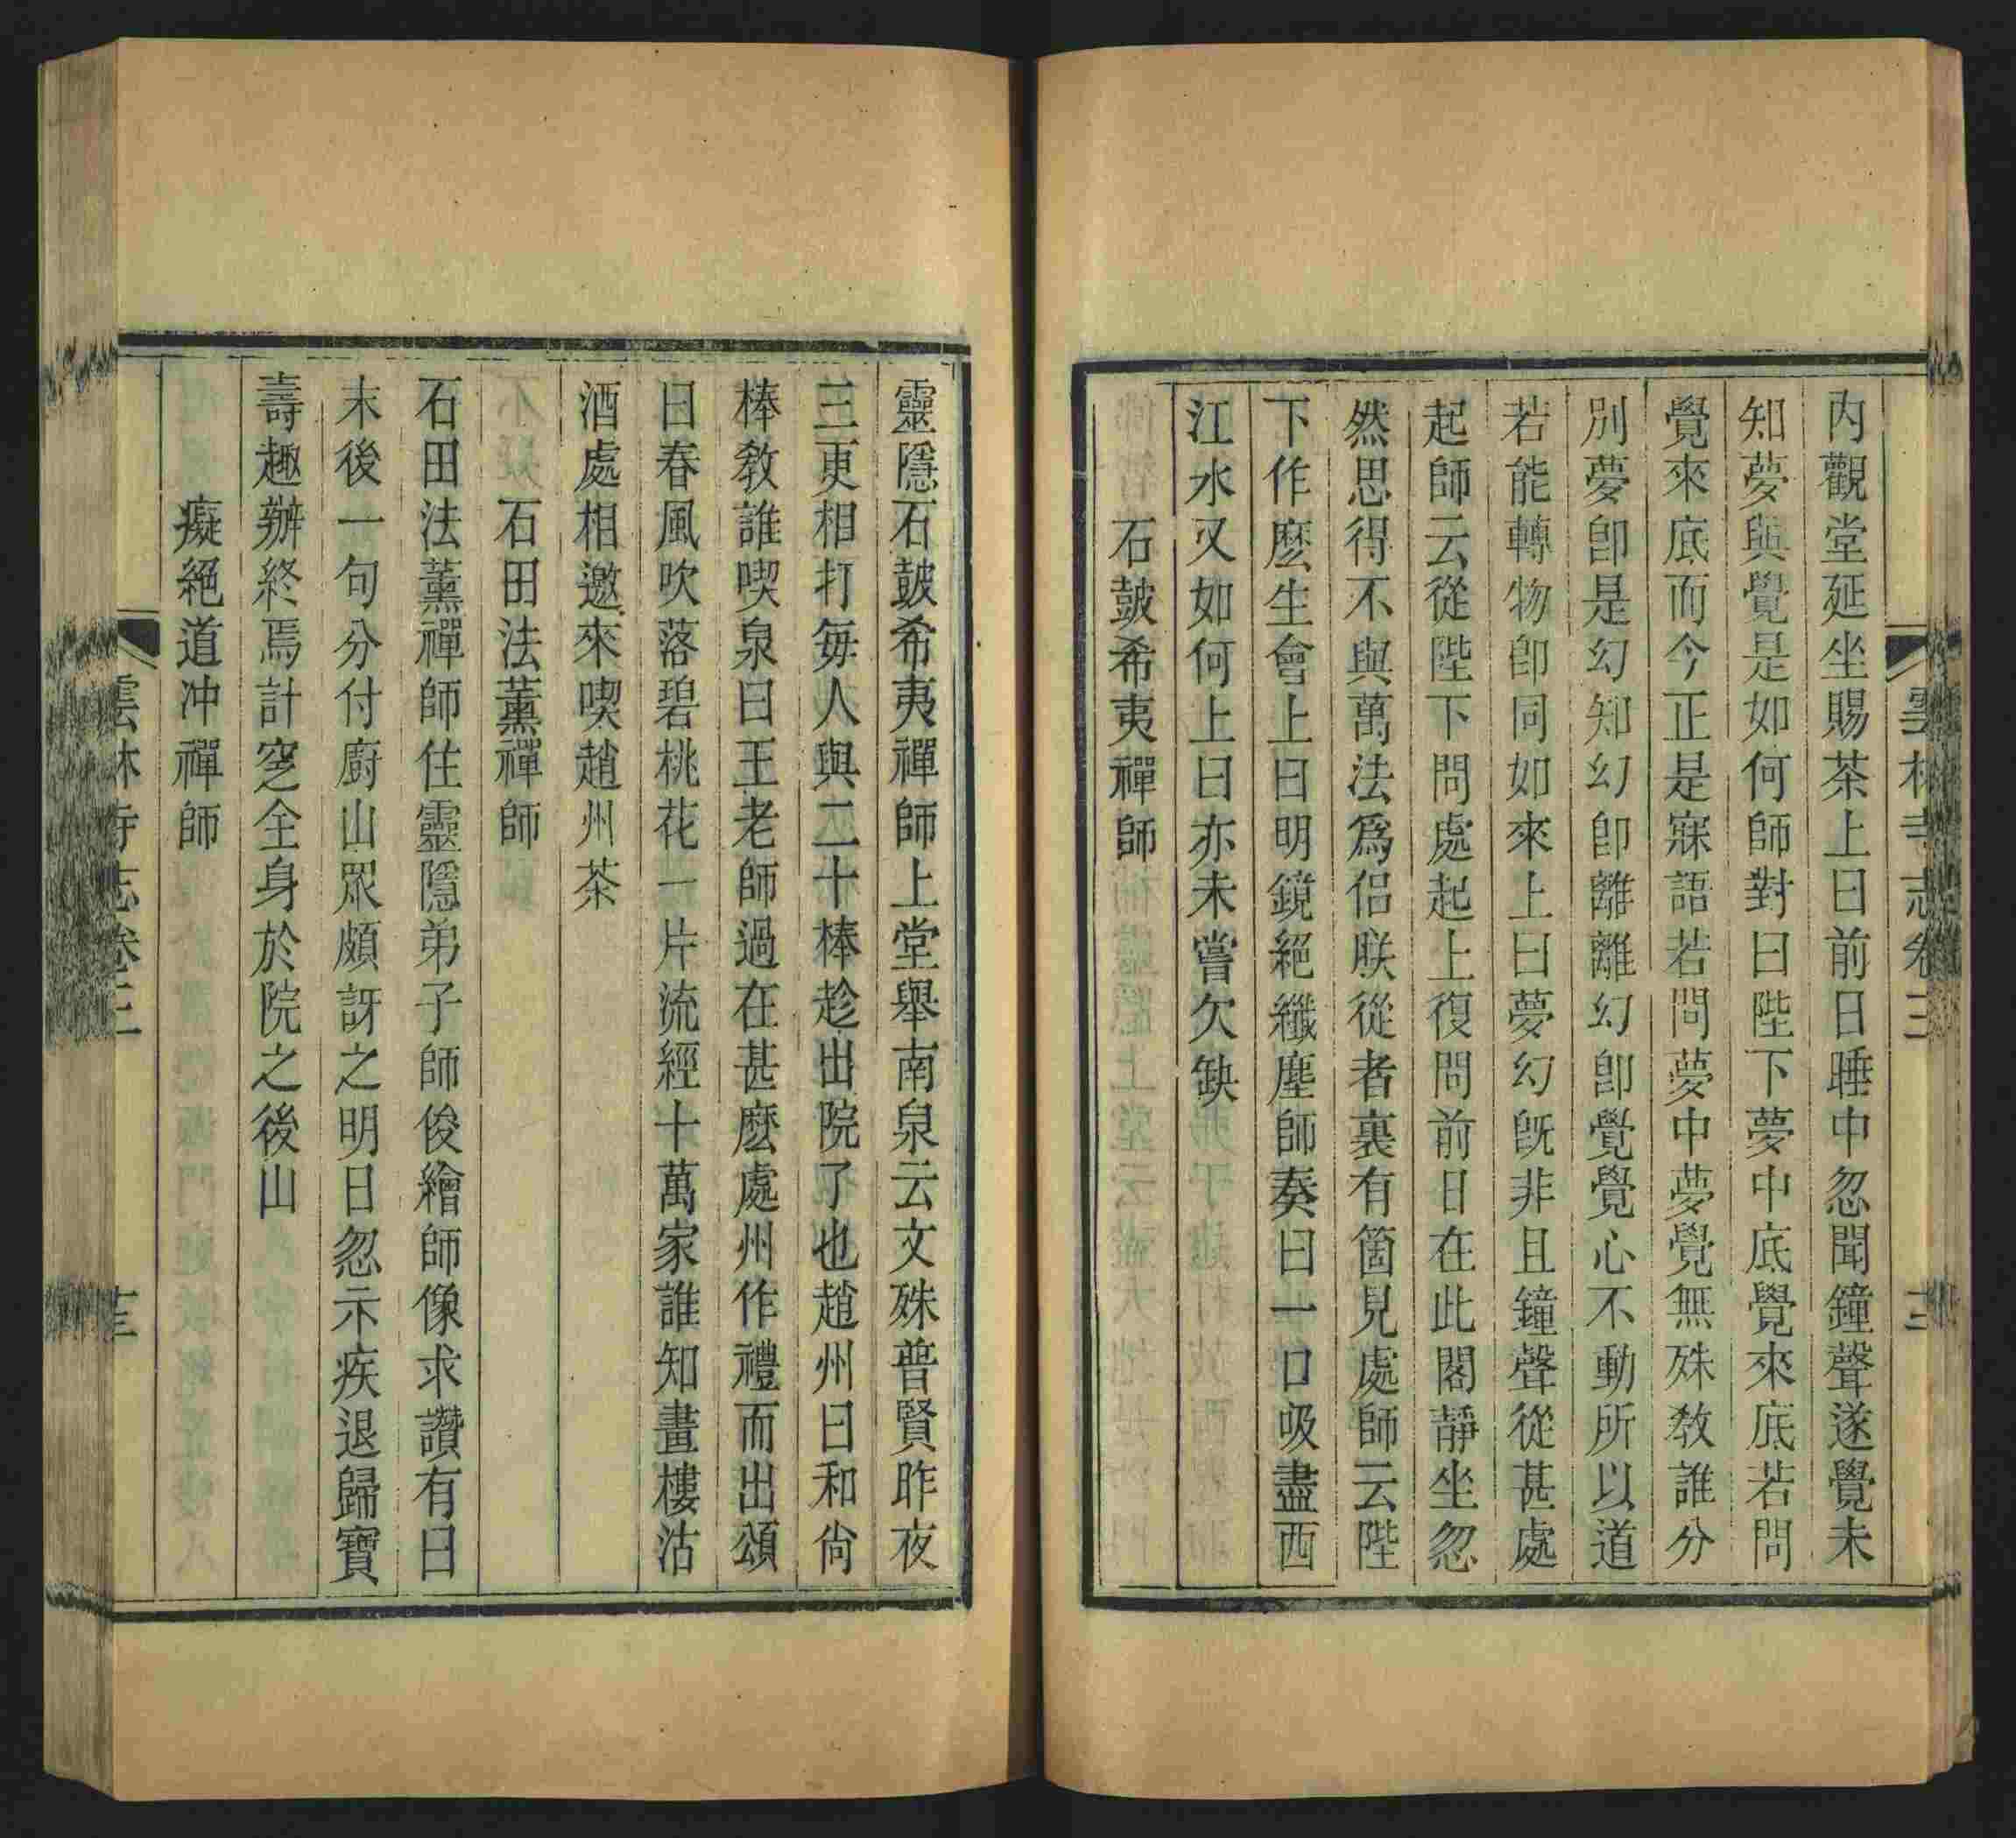 雲林寺志卷三
內觀堂延坐賜茶上曰前日睡中忽聞鐘聲遂覺未
知夢與覺是如何師對曰陛下夢中底覺來底若問
覺來底而今正是寐語若問夢中夢覺無殊教誰分
別夢卽是幻知幻卽離離幻卽覺覺心不動所以道
若能轉物卽同如來上曰夢幻旣非且鐘聲從甚處
起師云從陛下問處起上復問前日在此閣靜坐忽
然思得不與萬法爲侶朕從者裏有箇見處師云陛
下作麽生會上曰明鏡絕纖塵師奏曰一口吸盡西
江水又如何上曰亦未嘗欠缺
石皷希夷禪師
靈隱石皷希夷禪師上堂舉南泉云文殊普賢昨夜
三更相打每人與二十棒趁出院了也趙州曰和尙
棒敎誰喫泉曰王老師過在甚麽處州作禮而出頌
曰春風吹落碧桃花一片流經十萬家誰知畫樓沽
酒處相邀來喫趙州茶
石田法薰禪師
石田法薰禪師住靈隱弟子師俊繪師像求讚有曰
末後一句分付廚山眾頗訝之明日忽示疾退歸寶
壽趣辦終焉計窆全身於院之後山
癡絕道冲禪師
雲林寺志卷三